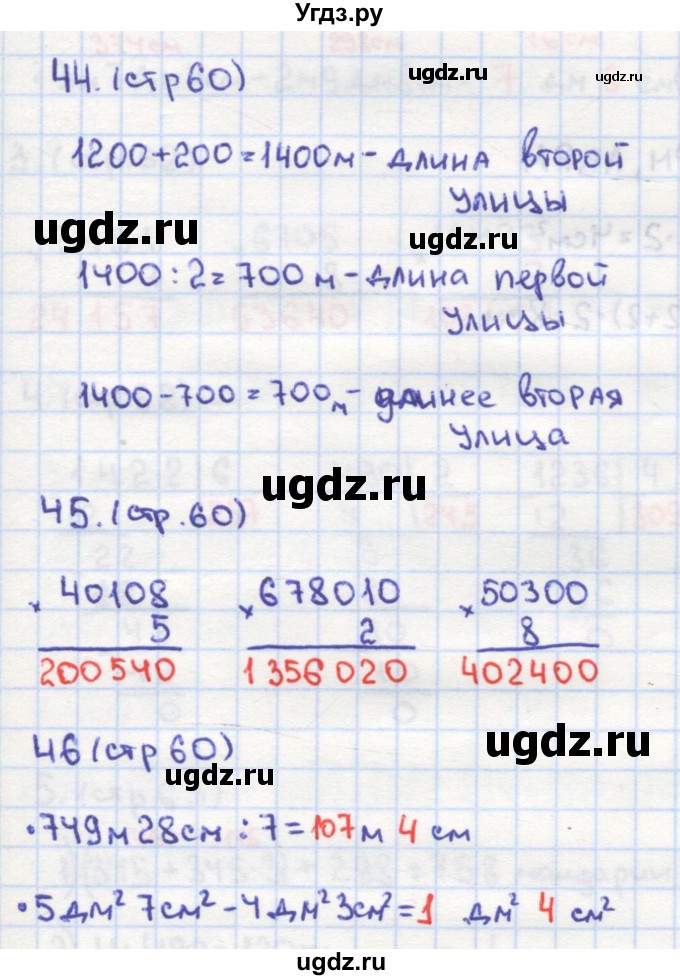 Угдз.ру
44. (стр 60)
ugdz.ru
ugdz.ru
1200+200=1400м - длина второй
улицы
ugdz.ru
ugdz.ru
1400:2=700 м - длина первой
улицы
1400-700=700м - длиннее вторая
улица
ugdz.ru
45. (стр. 60)
× 40108
5
200540
× 678010
2
1356020
× 50300
8
402400
46 (стр 60)
ugdz.ru
ugdz.ru
• 749м 28см : 7 = 107м 4 см
• 5 дм² 7см² - 4 дм² 3см² = 1 дм² 4 см²
ugdz.ru